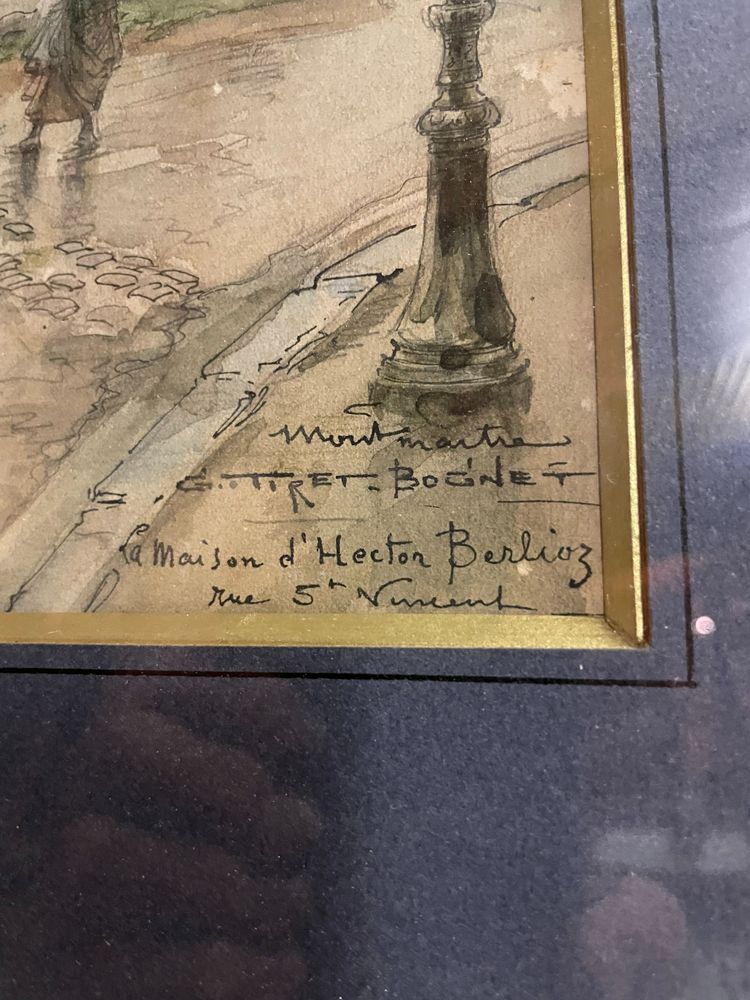 Montmartre
G. TIRET-BOGNET
la Maison d'Hector Berlioz
rue St Vincent